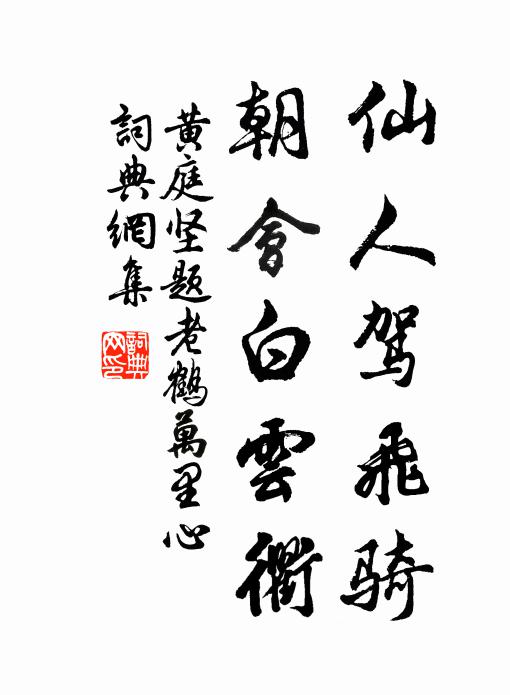 仙人駕飛騎
朝會白雲衢
黄庭坚題老鶴萬里心
詞典網集
詞典網印